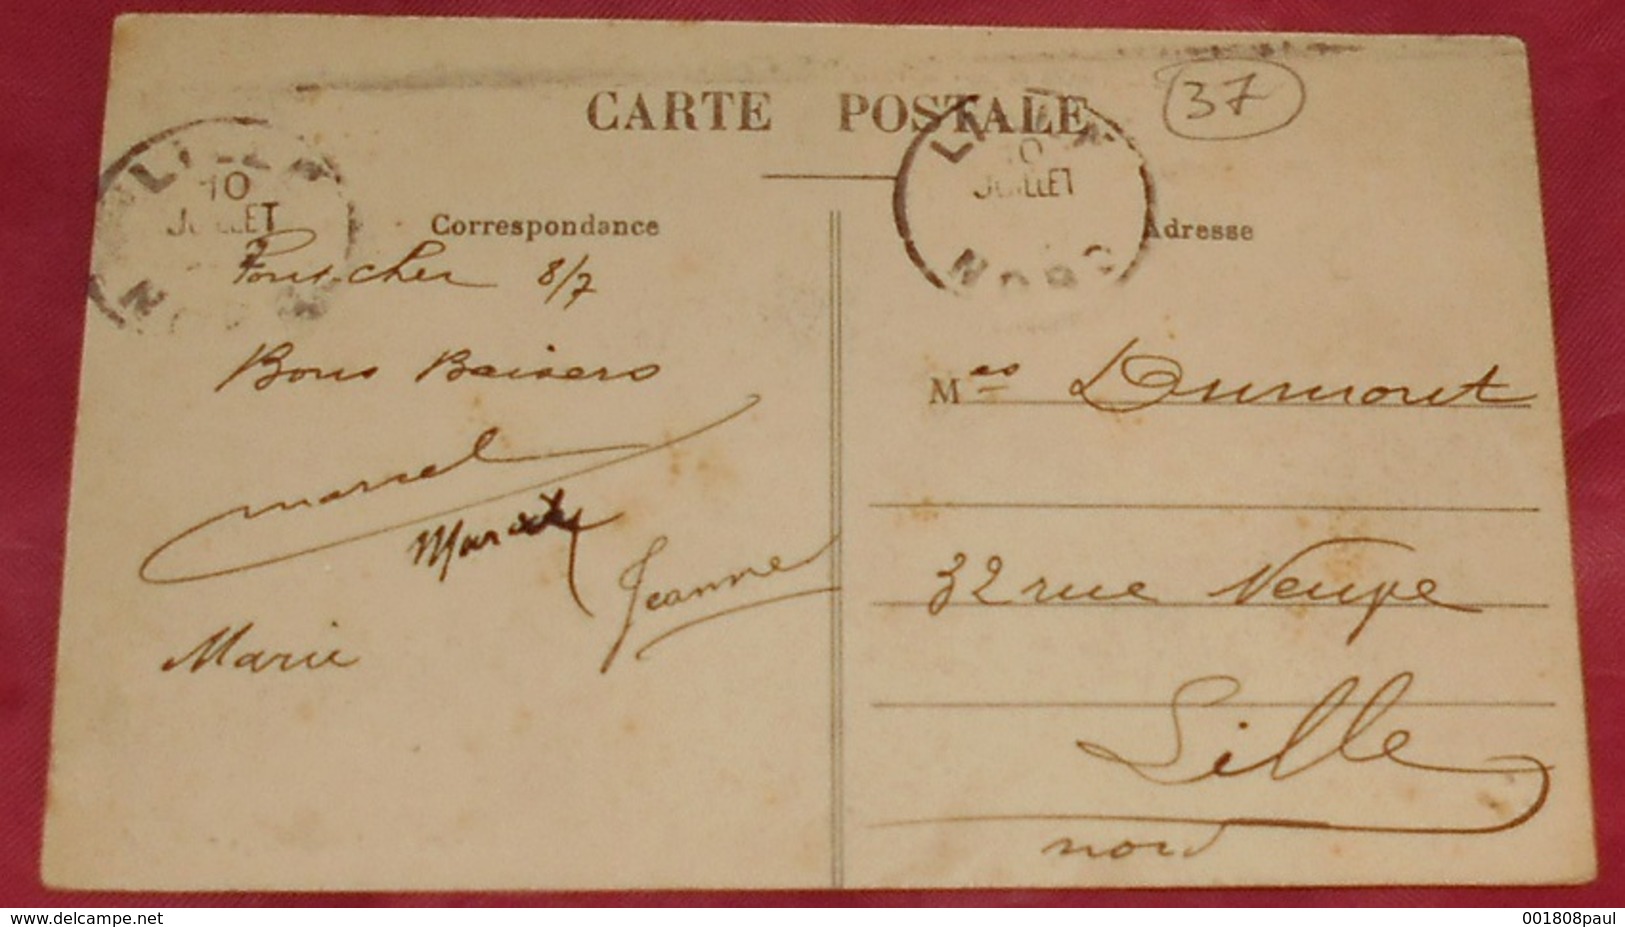 CARTE POSTALE
37
LILLE
10
JUILLET
NORD
LILLE
10
JUILLET
NORD
Correspondance
Adresse
Pont-cher 8/7
Bons Baisers
Marcel
Jeanne
Marie
Mes Dumont
32 rue Neuve
Lille
nord
www.delcampe.net
001808paul